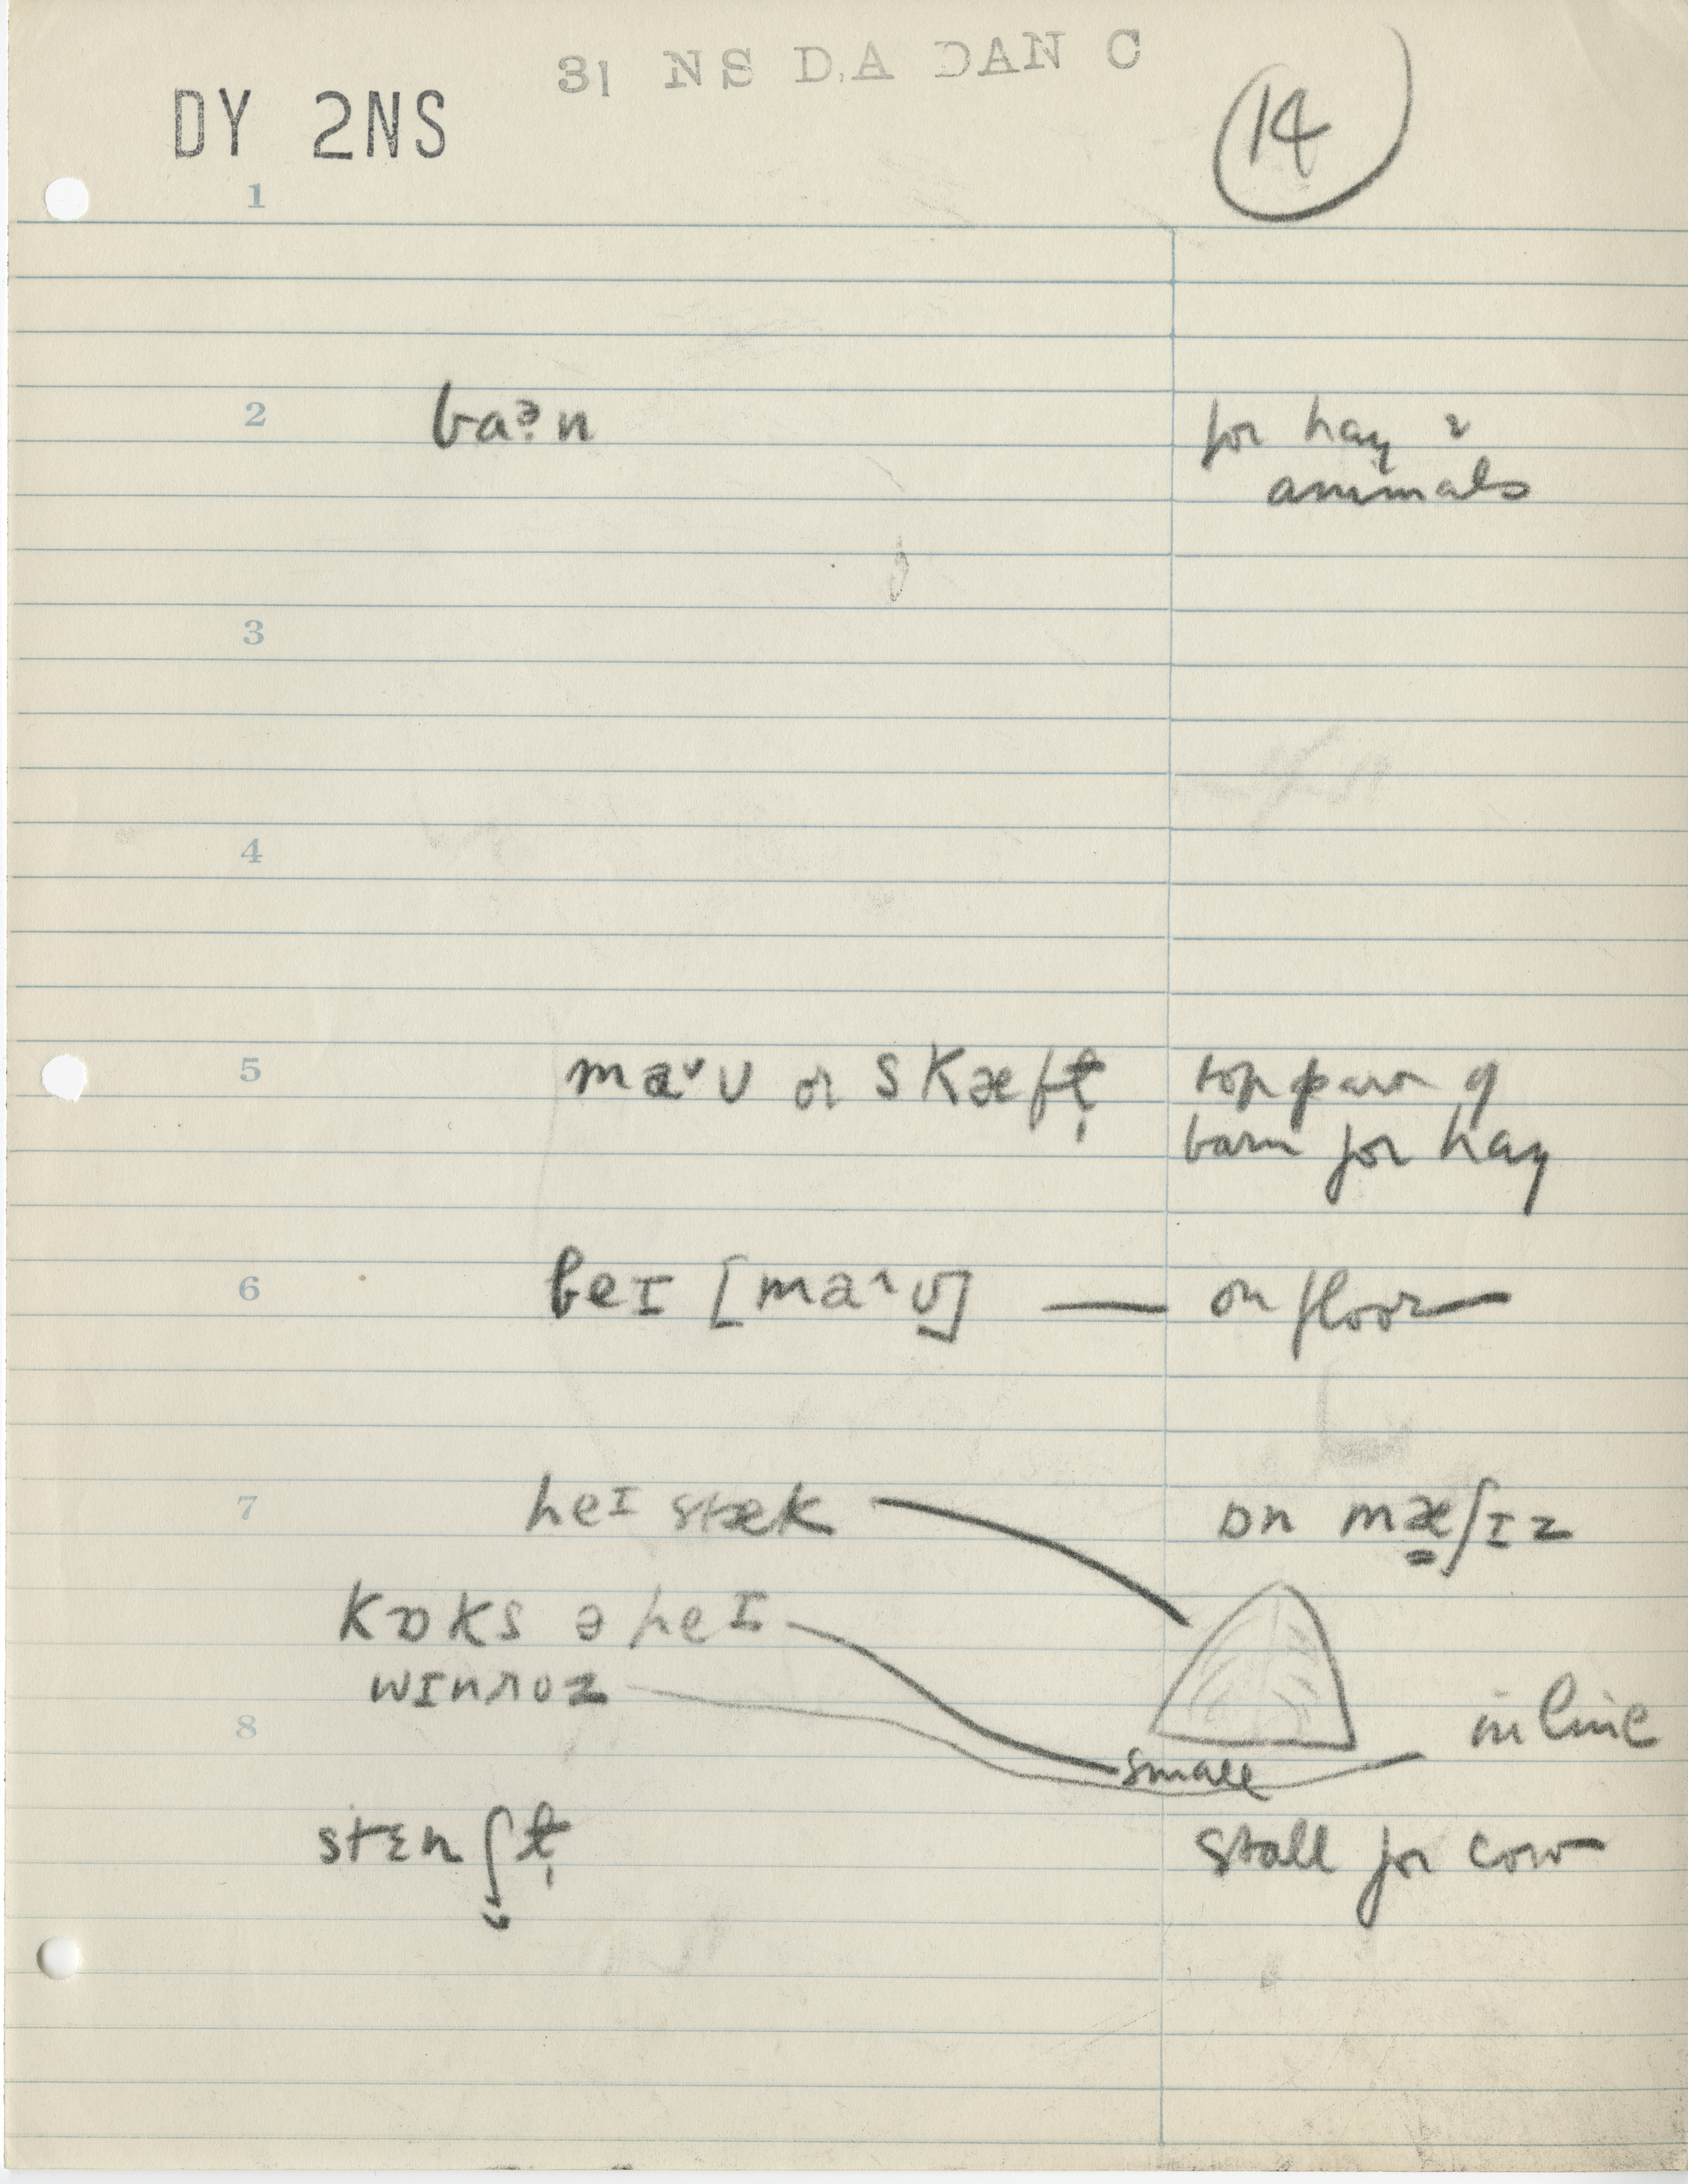 31 NS D.A DAN C
DY 2NS
14
1
2 baɚ̣n for hay &
animals
3
4
5 maᵛᴜ or skæft̬ top part of
barn for hay
6 beɪ [ma^ᴜ] — on floor
7 heɪ stæk ɒn mæ̳ʃɪz
kɒks ə heɪ
wɪnroz in line
8
small
stɛnʃt̬ stall for cow